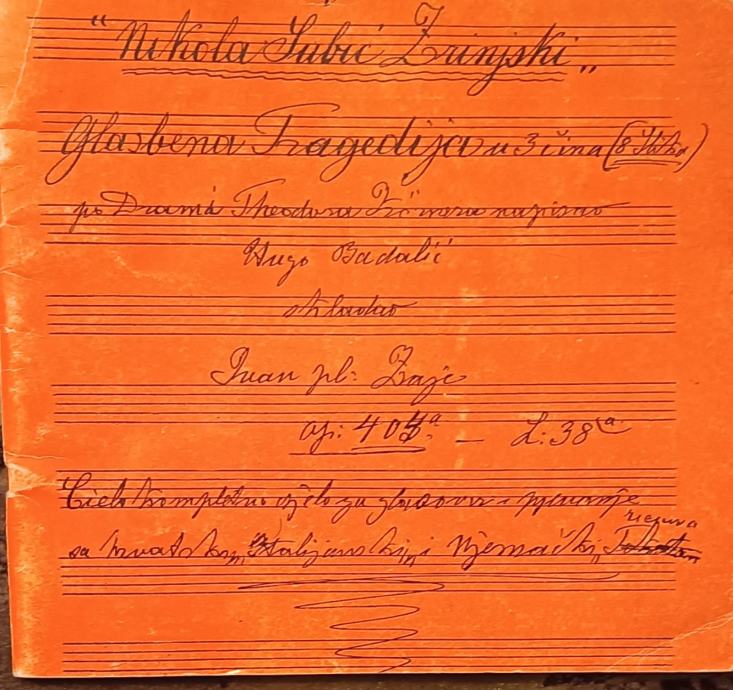 "Nikola Šubić Zrinjski"
Glasbena Tragedija u 3 čina (8 slika)
po Drami Theodora Körnera napisao
Hugo Badalić
skladao
Ivan pl: Zajc
op: 403ª. — L: 38ª
Cielo kompletno djelo za glasovir i pjevanje
sa hrvatskim, Italijanskim i Njemačkim